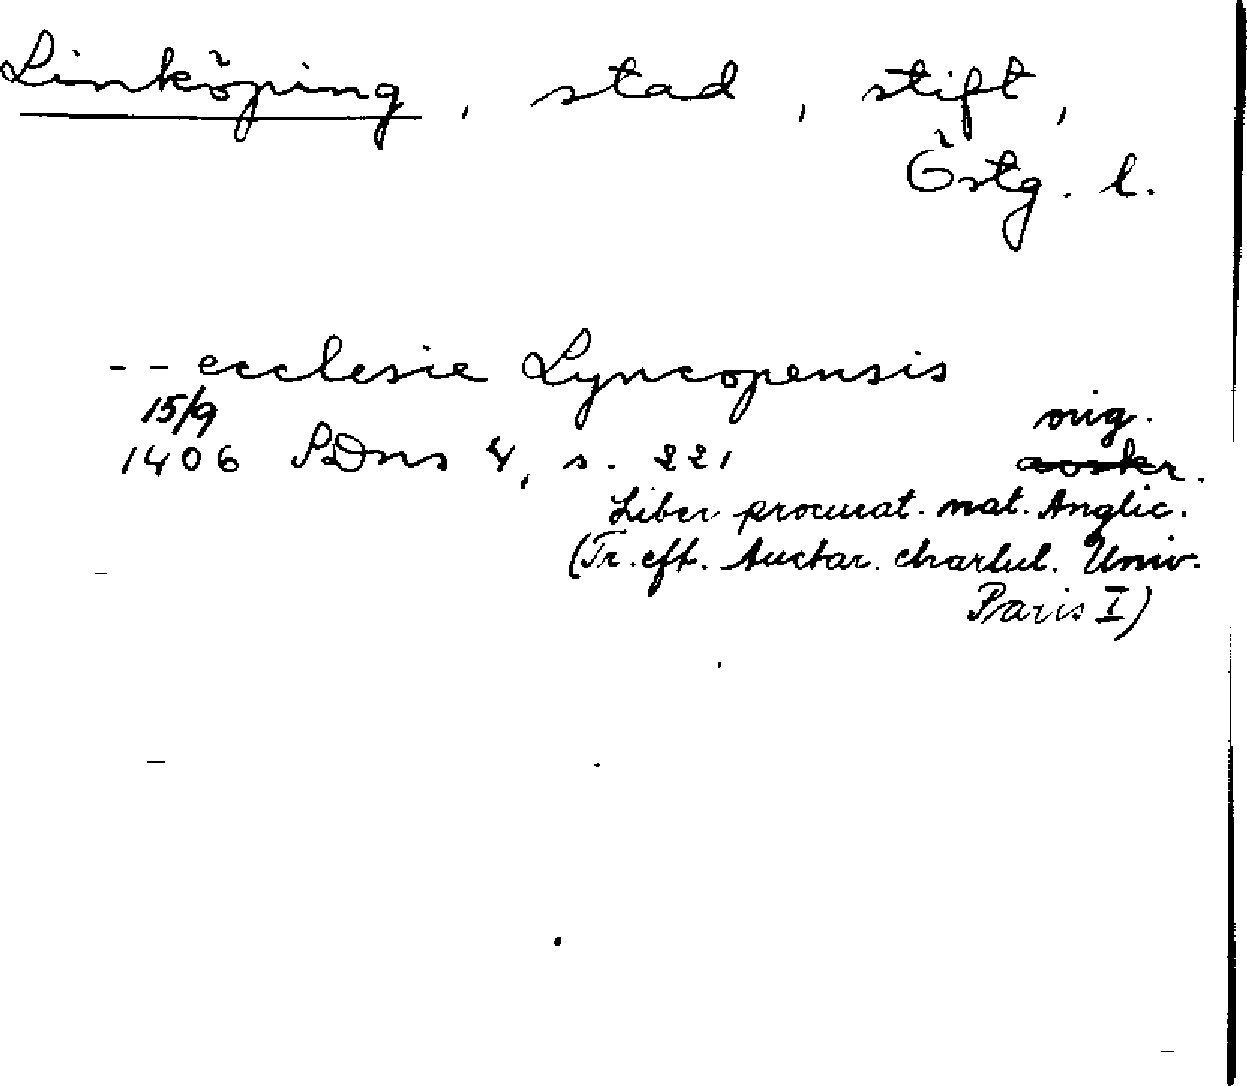 Linköping, stad, stift,
Östg. l.
- - ecclesie Lyncopensis
15/9 orig.
1406 SDns 4, s. 221 avskr.
Liber procurat. nat. Anglic.
(Tr. eft. Auctar. chartul. Univ.
Paris I)